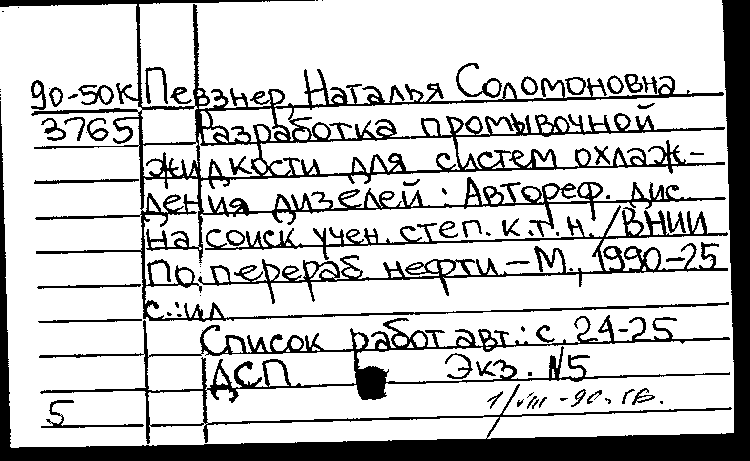 90-50к Певзнер, Наталья Соломоновна.
3765 Разработка промывочной
жидкости для систем охлаж-
дения дизелей : Автореф. дис.
на соиск. учен. степ. к.т.н. / ВНИИ
по перераб. нефти. – М., 1990. – 25
с.: ил.
Список работ авт.: с. 24-25.
ДСП. Экз. №5
5 1/VIII-90г.